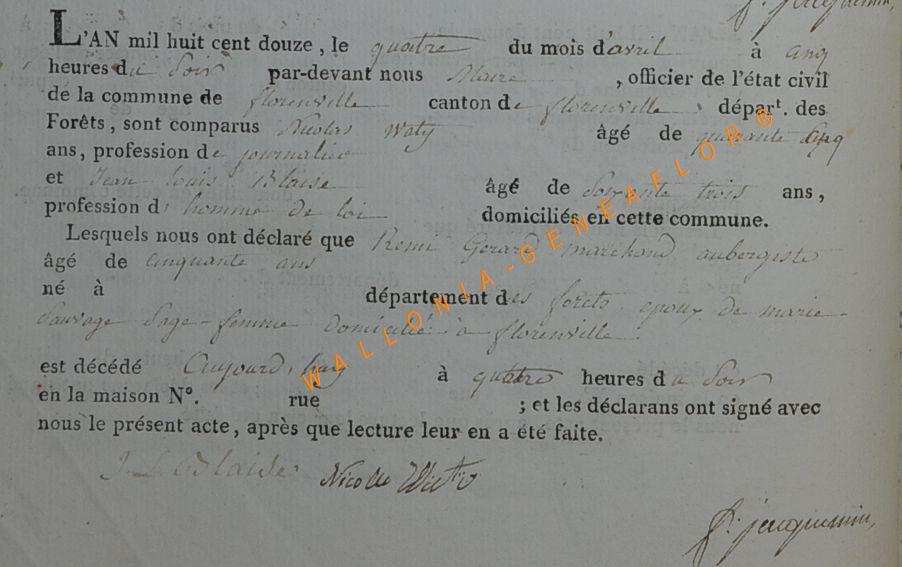 L'AN mil huit cent douze, le quatre du mois d'avril à cinq
heures du Soir par-devant nous Maire, officier de l'état civil
de la commune de florenville canton de florenville, dépar<sup>t</sup>. des
Forêts, sont comparus Nicolas Waty âgé de quarante cinq
ans, profession de journalier
et Jean Louis Blaise âgé de Soixante trois ans,
profession d' homme de loi domiciliés en cette commune.
Lesquels nous ont déclaré que Remi Gerard marchand aubergiste
âgé de cinquante ans
né à département des forets, epoux de marie-
Sauvage Sage-femme domicilié à florenville.
est décédé Aujourd'huy à quatre heures du Soir
en la maison N°. rue ; et les déclarans ont signé avec
nous le présent acte, après que lecture leur en a été faite.
Nicolas
jacquemin,
WALLONIA-GENEAFLOR ®